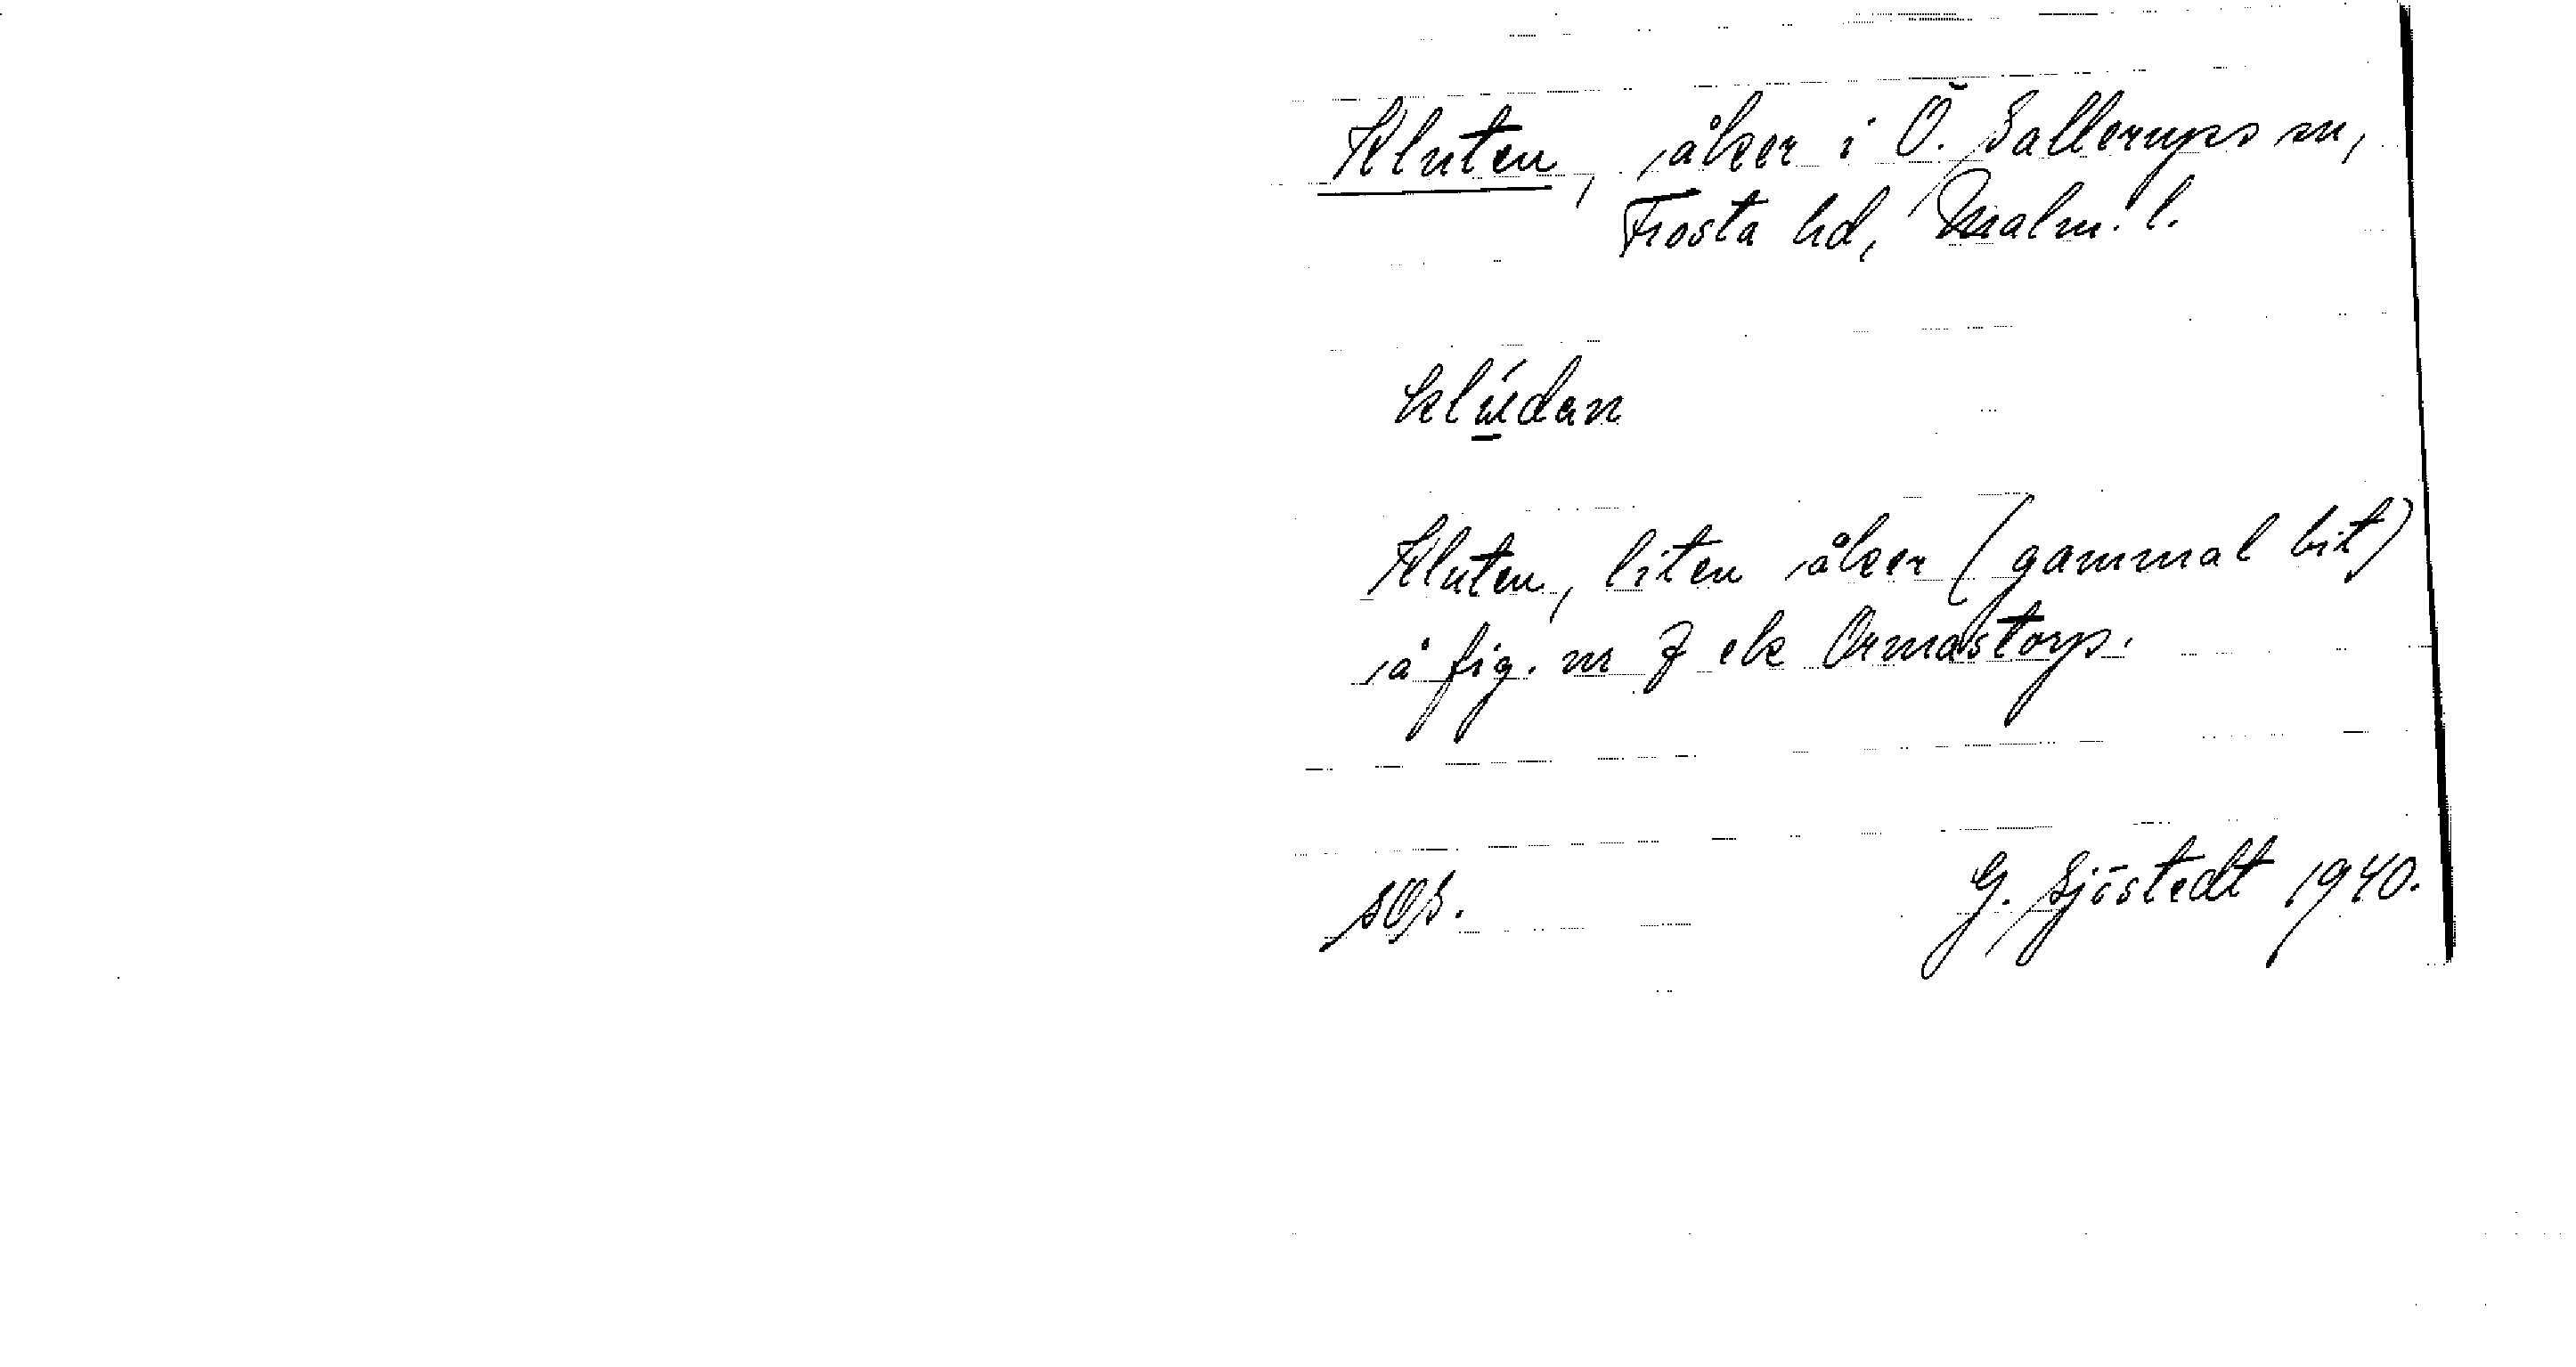 Kluten, åker i Ö. Sallerups sn,
Frosta hd, Malm. l.
klúdan
Kluten, liten åker (gammal bit)
å fig. m 7 ek Ormastorp.
SOS. G. Sjöstedt 1940.